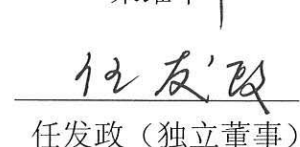 任发政
任发政（独立董事）